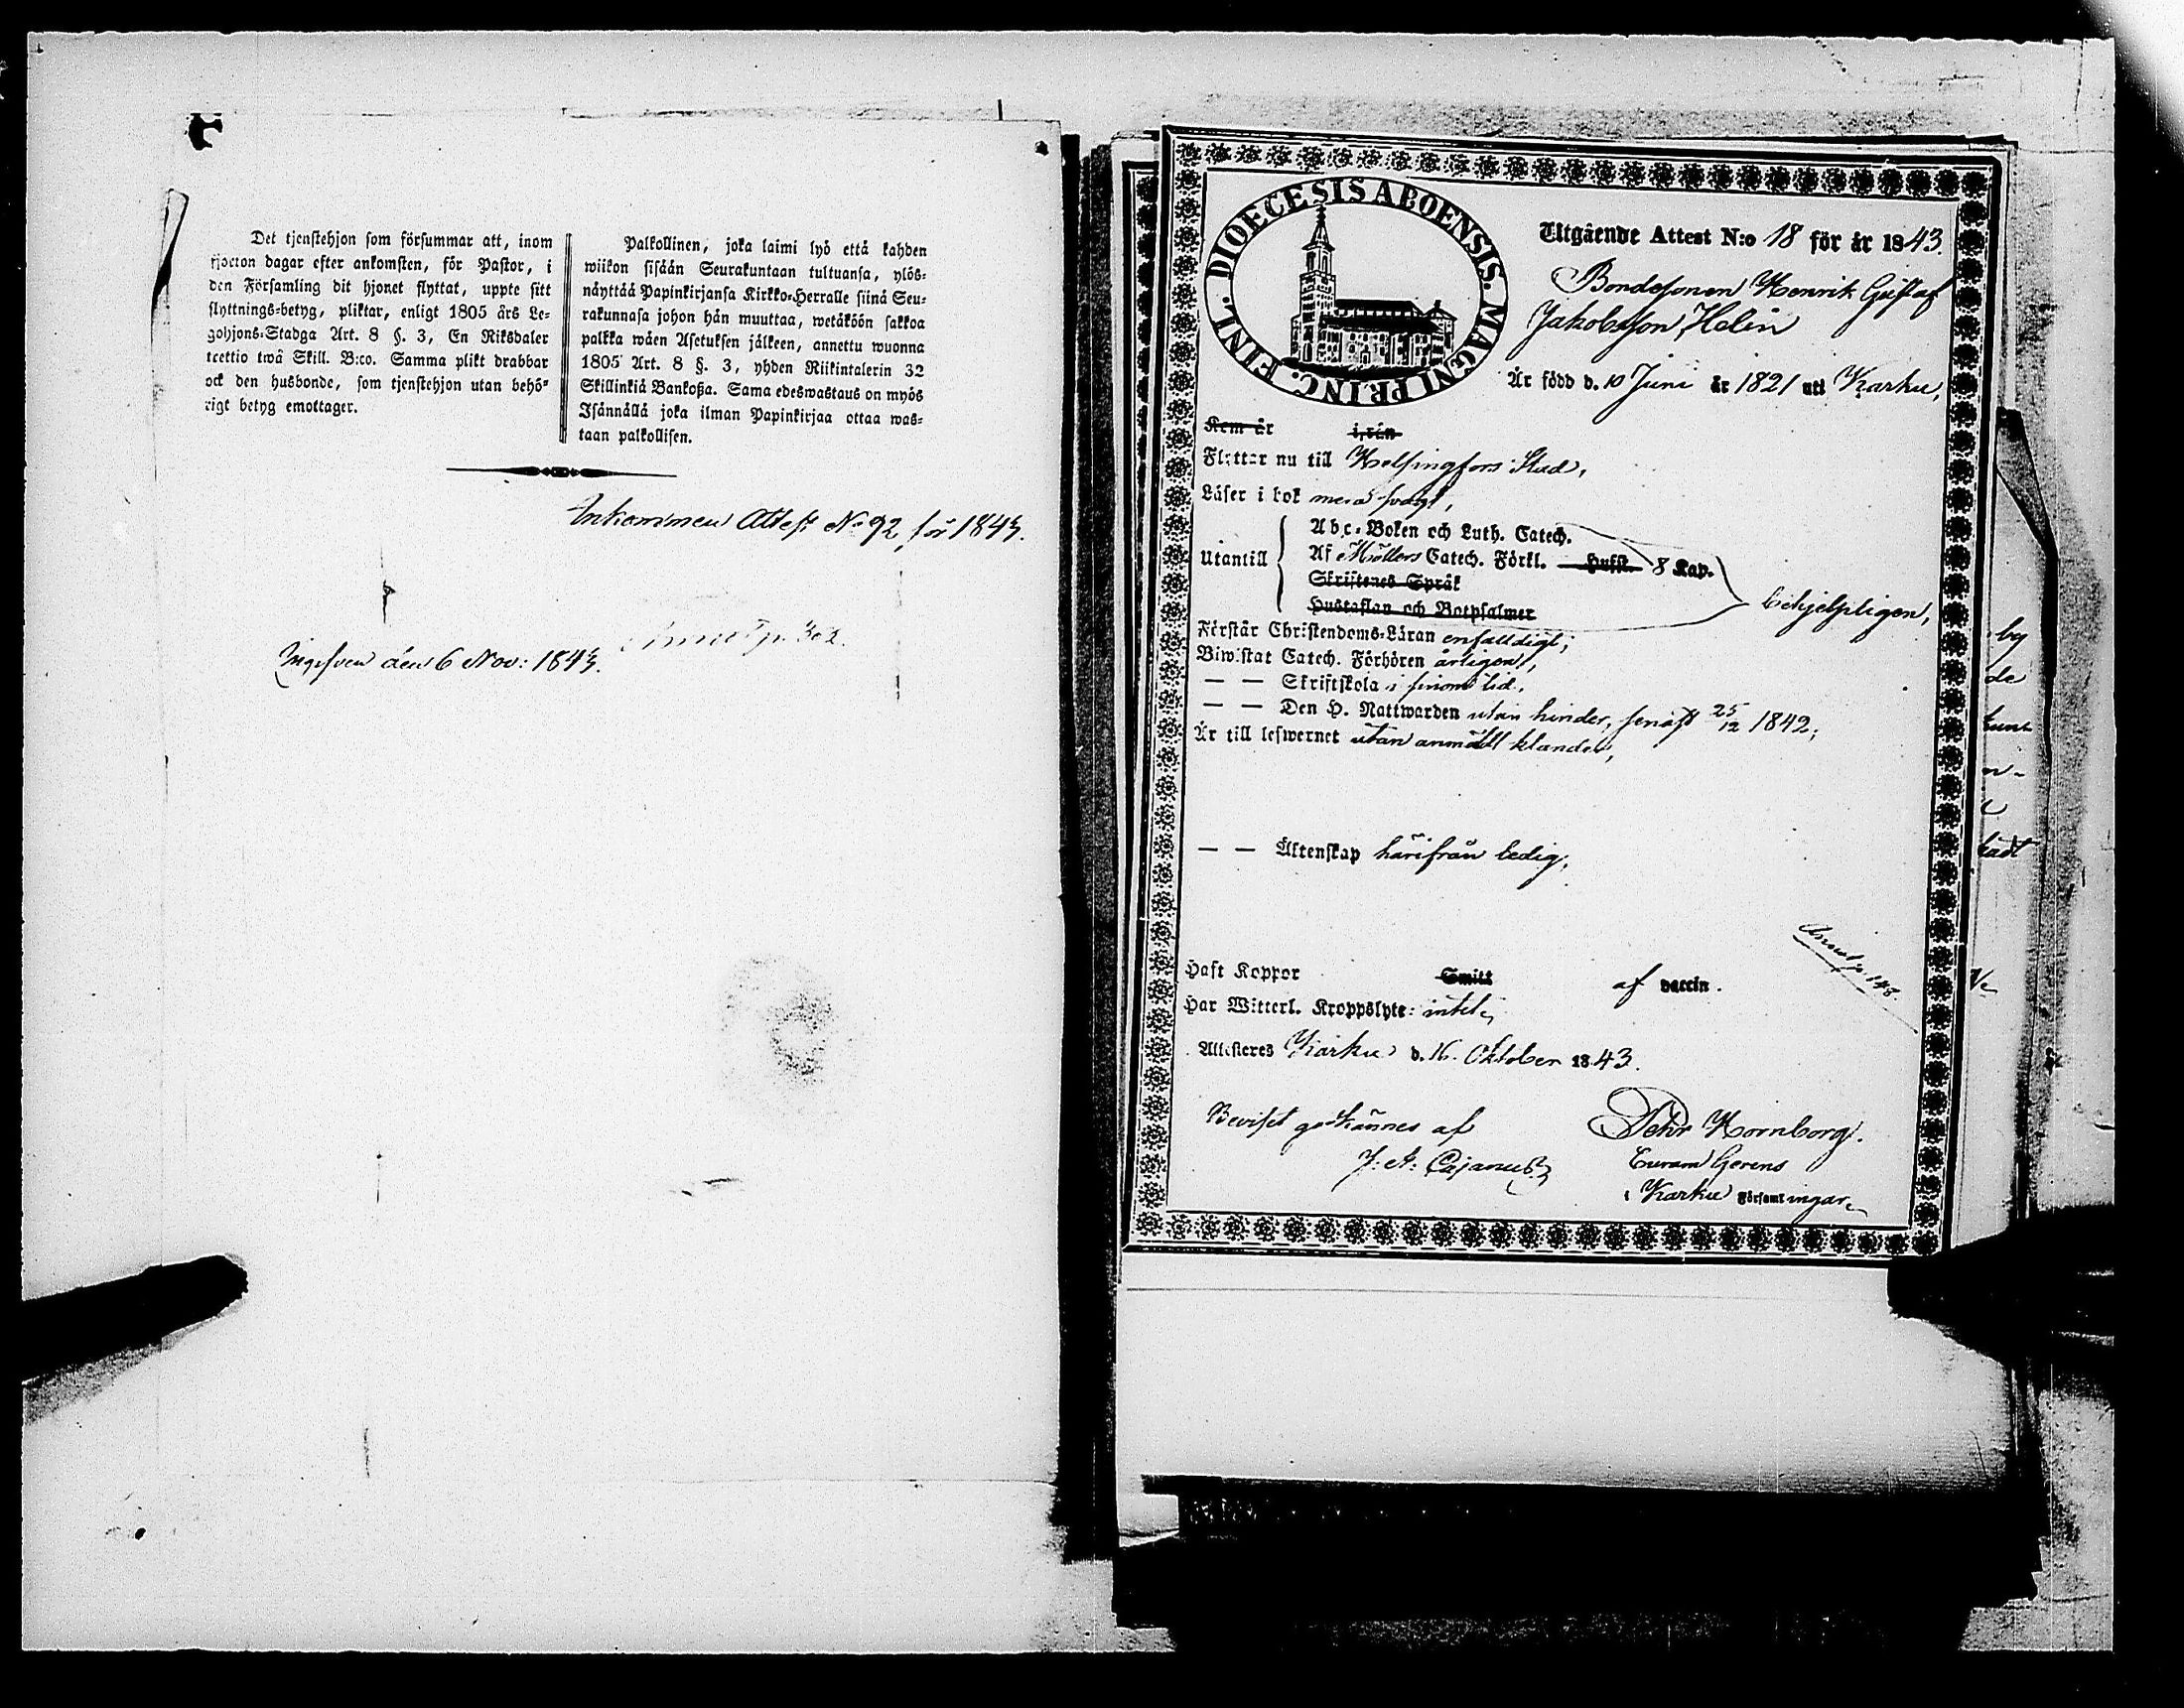 Det tjenstehjon som försummar att, inom
fjorton dagar efter ankomsten, för Pastor, i
den Församling dit hjonet flyttat, uppte sitt
flyttnings-betyg, pliktar, enligt 1805 års Le-
gohjons-Stadga Art. 8 §. 3, En Riksdaler
trettio twå Skill. B:co. Samma plikt drabbar
ock den husbonde, som tjenstehjon utan behö-
rigt betyg emottager.
Palkollinen, joka laimi lyö että kahden
wiikon sisään Seurakuntaan tultuansa, ylös-
näyttää Papinkirjansa Kirkko-Herralle siinä Seu-
rakunnasa johon hän muuttaa, wetäköön sakkoa
palkka wäen Asetuksen jälkeen, annettu wuonna
1805 Art. 8 §. 3, yhden Riikintalerin 32
Skillinkiä Bankoßa. Sama edeswastaus on myös
Isännällä joka ilman Papinkirjaa ottaa was-
taan palkollisen.
Inkommen Attest No 92 för 1843.
Annot. p. 302.
Ingifven den 6 Nov: 1843.
DIOECESIS ABOENSIS. MAGNI PRINC. FINL.
Utgående Attest N:o 18 för år 1843.
Bondesonen Henrik Gustaf
Jakobsson Helin
Är född d. 10 Juni år 1821 uti Karku,
Kom år ifrån
Flyttar nu till Helsingfors Stad,
Läser i bok mera svagt,
Utantill
Abc-Boken och Luth. Catech.
Af Möllers Catech. Förkl. Hufst. 8 Kap.
Skriftenes Språk
Hustaflan och Botpsalmer
behjelpligen,
Förstår Christendoms-Läran enfaldigt;
Biwistat Catech. Förhören årligen,
— — Skriftskola i sinom tid.
— — Den H. Nattwarden utan hinder, senast 25/12 1842;
Är till lefwernet utan anmäldt klander,
— — Äktenskap härifrån ledig.
Annot p. 148.
Haft Koppor Smitt af vaccin.
Har Witterl. Kroppslyte: intet
Attesteres Karku d. 16. Oktober 1843.
Beviset godkännes af
J. A. Cajanus
Pehr Hornborg.
Curam Gerens
i Karku Församlingar
by
de